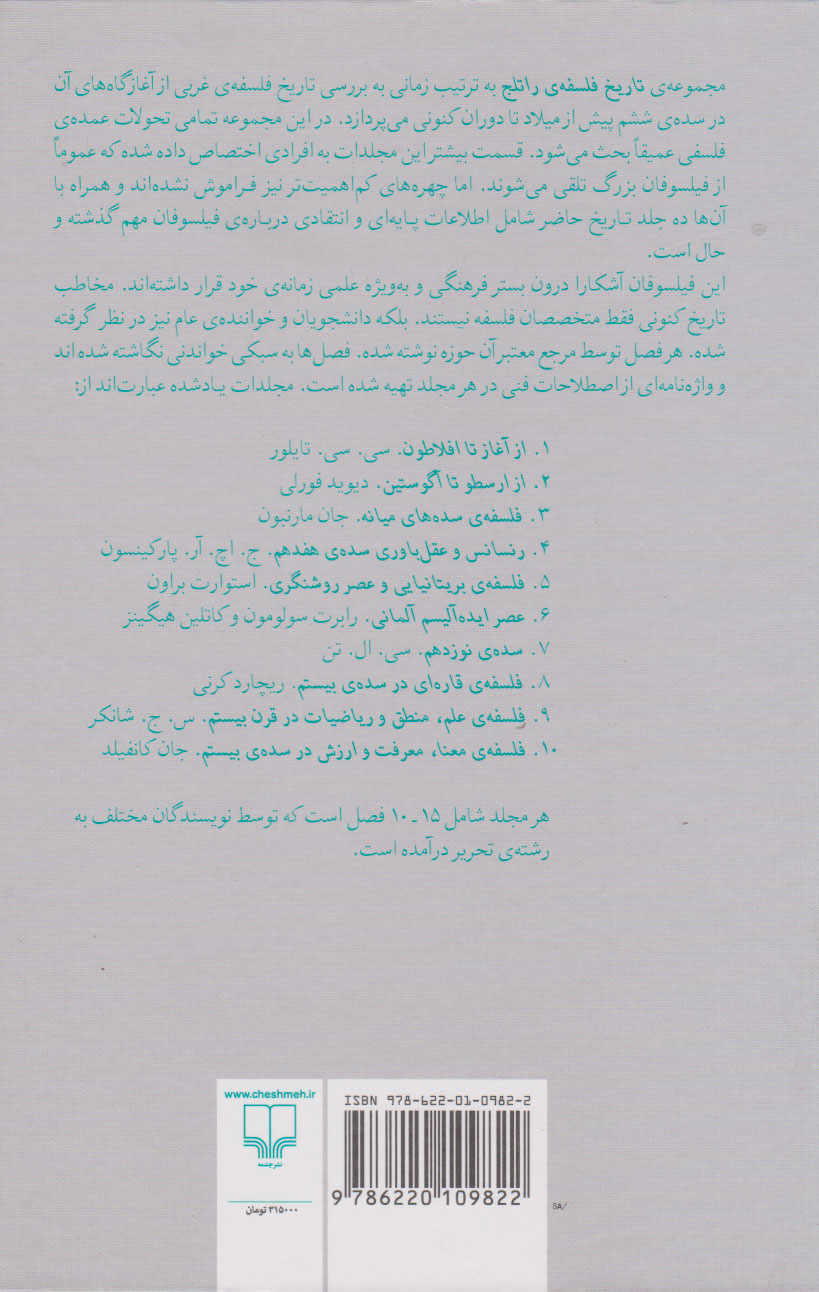 مجموعه‌ی تاریخ فلسفه‌ی راتلج به ترتیب زمانی به بررسی تاریخ فلسفه‌ی غربی از آغازگاه‌های آن
در سده‌ی ششم پیش از میلاد تا دوران کنونی می‌پردازد. در این مجموعه تمامی تحولات عمده‌ی
فلسفی عمیقاً بحث می‌شود. قسمت بیشتر این مجلدات به افرادی اختصاص داده شده که عموماً
از فیلسوفان بزرگ تلقی می‌شوند. اما چهره‌های کم‌اهمیت‌تر نیز فراموش نشده‌اند و همراه با
آن‌ها ده جلد تاریخ حاضر شامل اطلاعات پایه‌ای و انتقادی درباره‌ی فیلسوفان مهم گذشته و
حال است.
این فیلسوفان آشکارا درون بستر فرهنگی و به‌ویژه علمی زمانه‌ی خود قرار داشته‌اند. مخاطب
تاریخ کنونی فقط متخصصان فلسفه نیستند. بلکه دانشجویان و خواننده‌ی عام نیز در نظر گرفته
شده. هر فصل توسط مرجع معتبر آن حوزه نوشته شده. فصل‌ها به سبکی خواندنی نگاشته شده اند
و واژه‌نامه‌ای از اصطلاحات فنی در هر مجلد تهیه شده است. مجلدات یادشده عبارت‌اند از:
۱. از آغاز تا افلاطون. سی. سی. تایلور
۲. از ارسطو تا آگوستین. دیوید فورلی
۳. فلسفه‌ی سده‌های میانه. جان مارنبون
۴. رنسانس و عقل‌باوری سده‌ی هفدهم. ج. اچ. آر. پارکینسون
۵. فلسفه‌ی بریتانیایی و عصر روشنگری. استوارت براون
۶. عصر ایده‌آلیسم آلمانی. رابرت سولومون و کاتلین هیگینز
۷. سده‌ی نوزدهم. سی. ال. تن
۸. فلسفه‌ی قاره‌ای در سده‌ی بیستم. ریچارد کرنی
۹. فلسفه‌ی علم، منطق و ریاضیات در قرن بیستم. س. ج. شانکر
۱۰. فلسفه‌ی معنا، معرفت و ارزش در سده‌ی بیستم. جان کانفیلد
هر مجلد شامل ۱۵ ـ ۱۰ فصل است که توسط نویسندگان مختلف به
رشته‌ی تحریر درآمده است.
www.cheshmeh.ir
نشر چشمه
۳۱۵۰۰۰ تومان
ISBN 978-622-01-0982-2
9 786220 109822
SA/